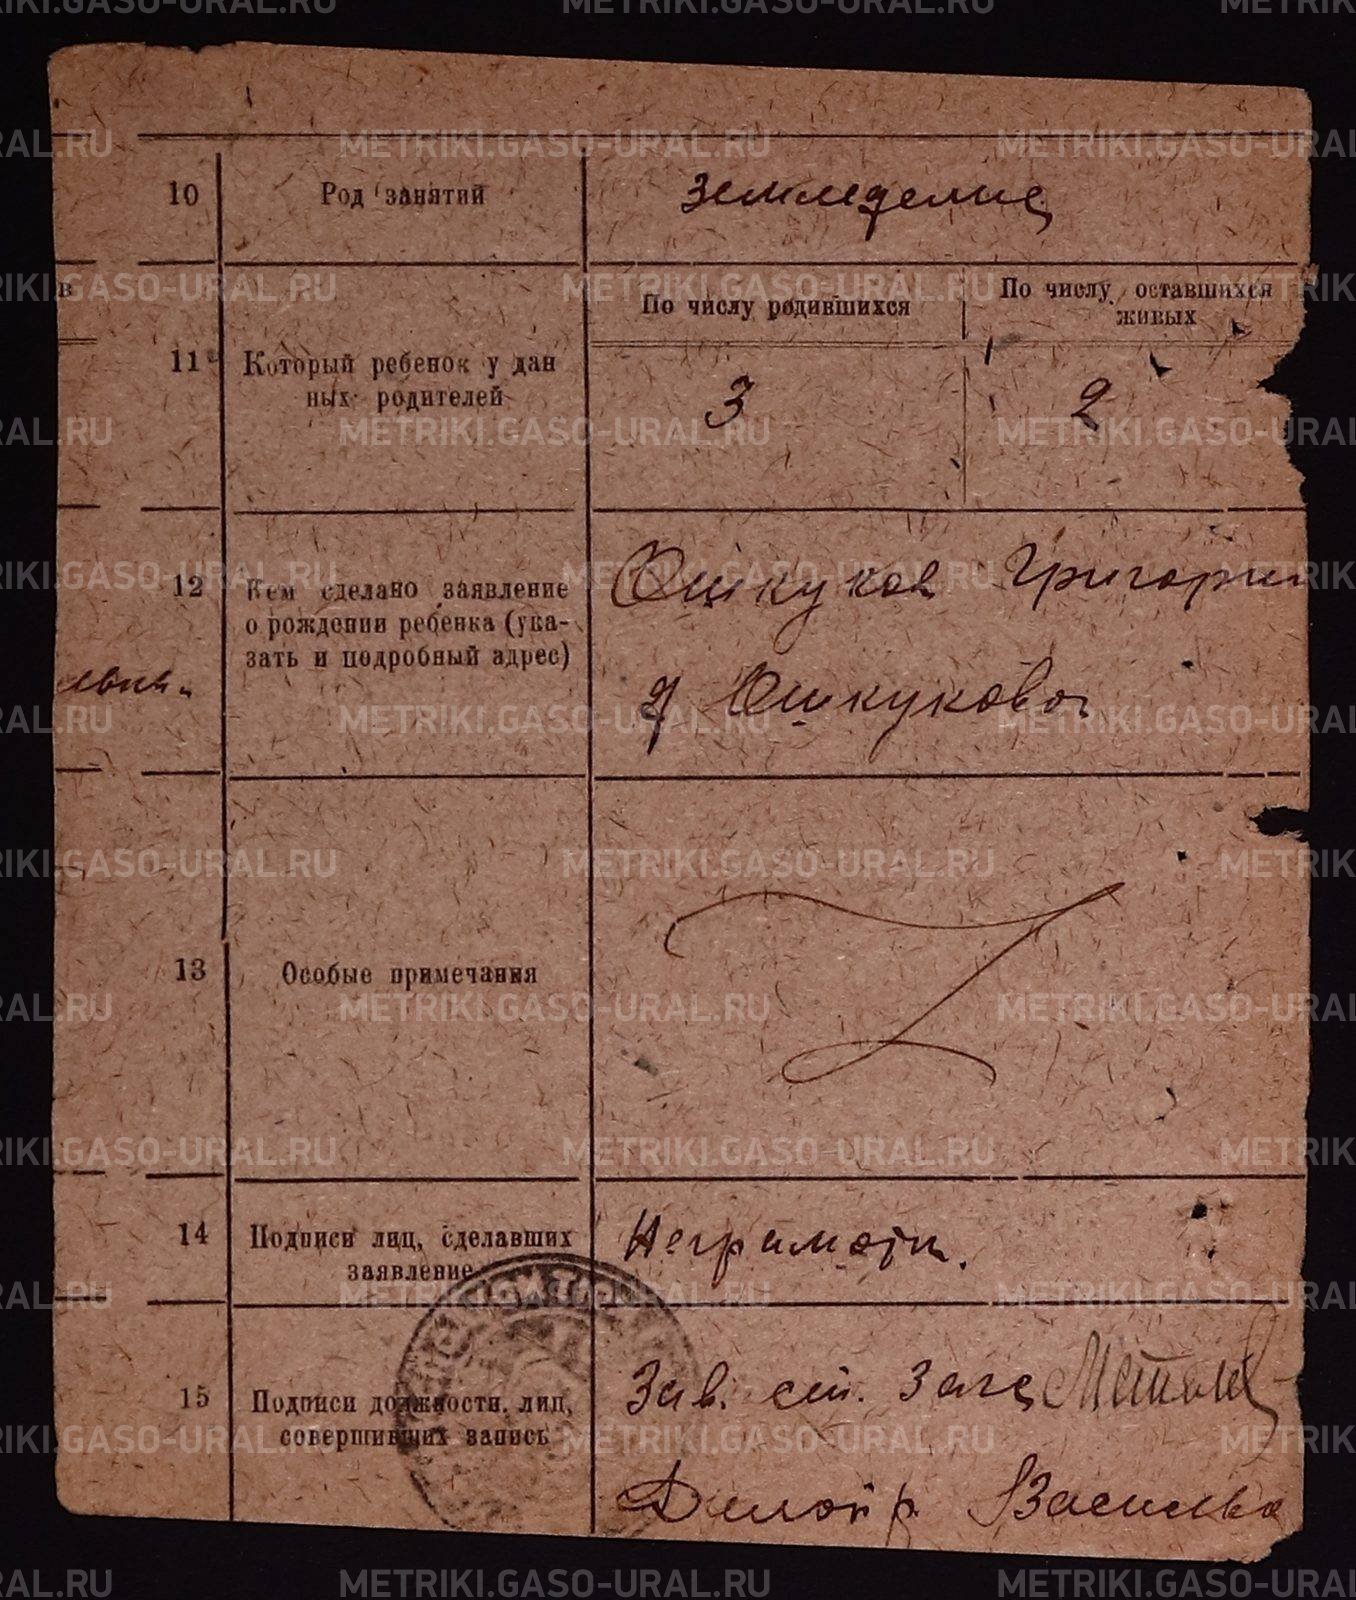 10 Род занятий земледелие
в
11 Который ребенок у дан
ных родителей
По числу родившихся
По числу оставшихся
живых
3 2
12 Кем сделано заявление
о рождении ребенка (ука-
зать и подробный адрес)
Ошкуков Григорий
д Ошкукова
13 Особые примечания
14 Подписи лиц, сделавших
заявление
Неграмотн.
15 Подписи должности. лиц,
совершивших запись
Зав. ст. Загс
Делопр. Васильев
METRIKI.GASO-URAL.RU